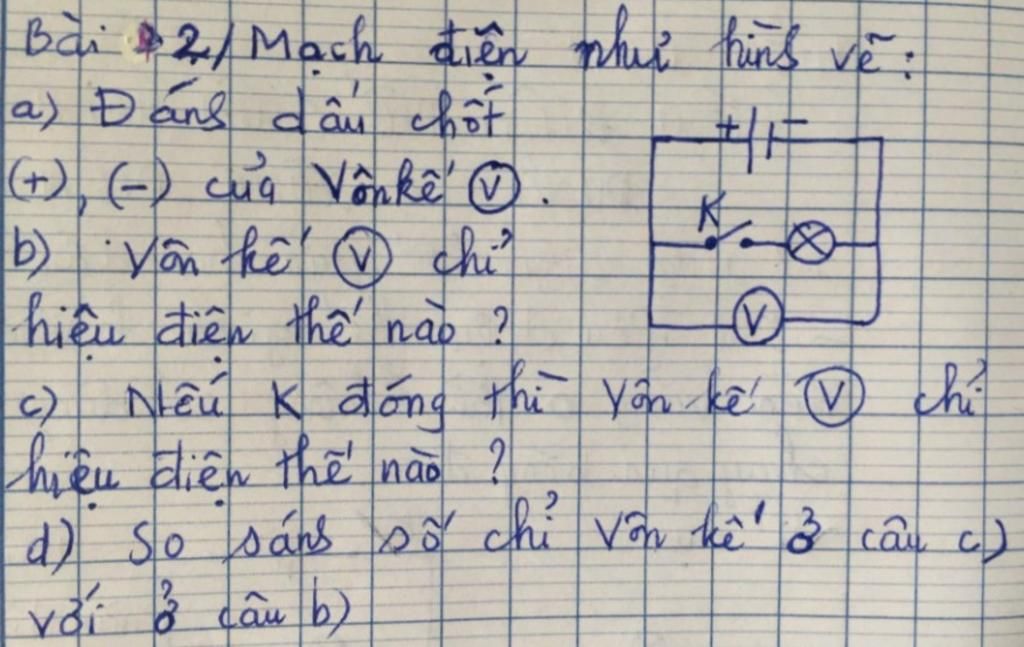 Bài 2/ Mạch điện như hình vẽ:
a) Đánh dấu chốt
+ −
(+), (−) của Vôn kế Ⓥ.
K
b) Vôn kế Ⓥ chỉ
V
hiệu điện thế nào ?
c) Nếu K đóng thì Vôn kế Ⓥ chỉ
hiệu điện thế nào ?
d) So sánh số chỉ Vôn kế ở câu c)
với ở câu b)